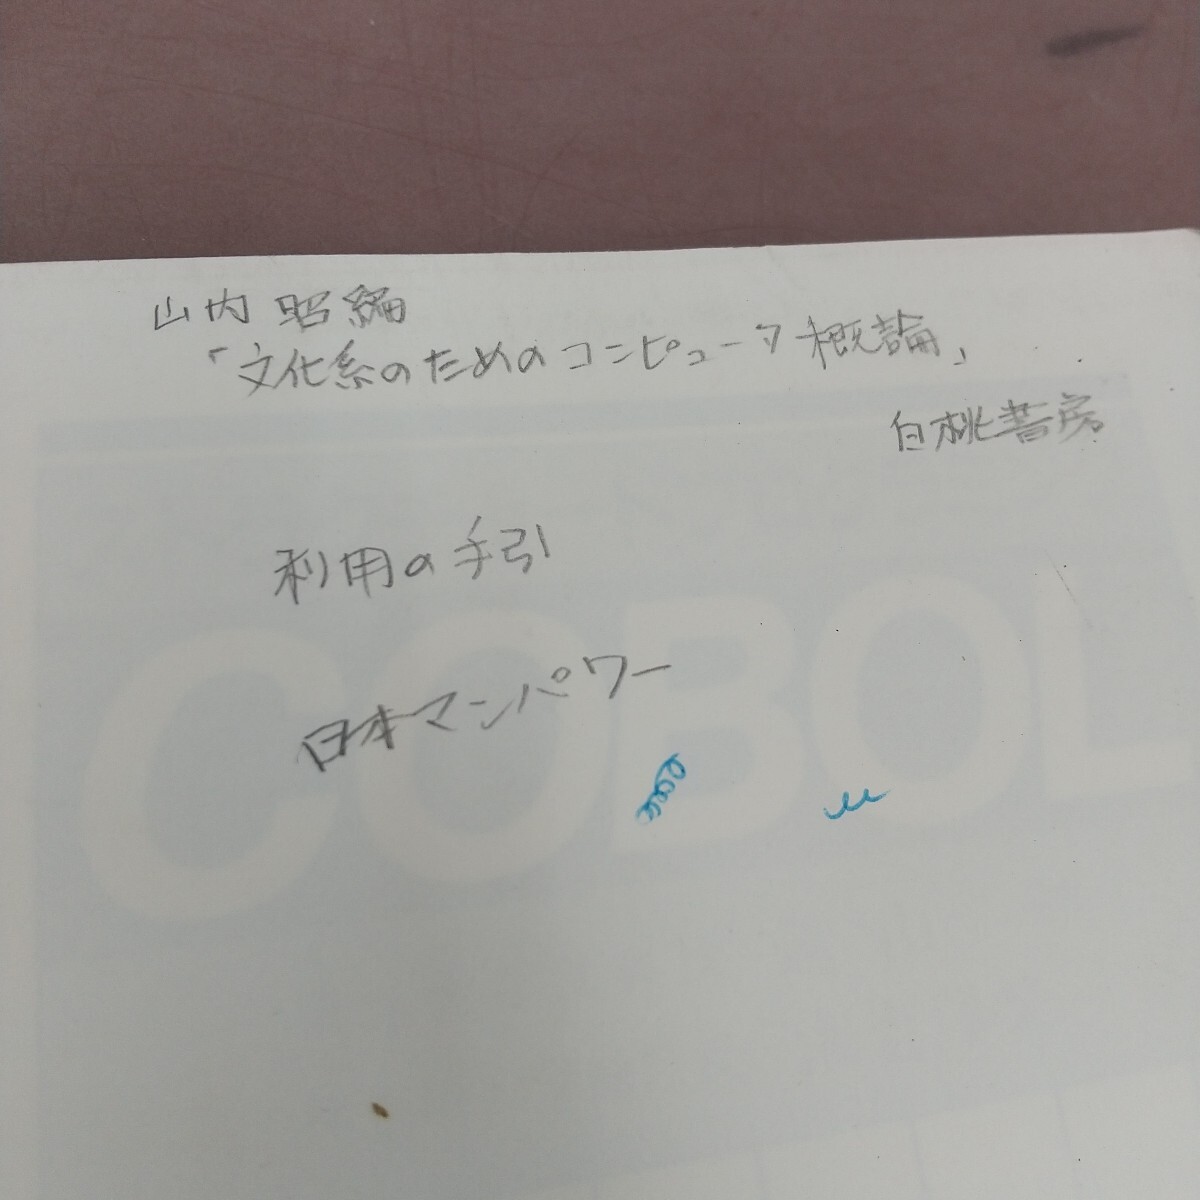 山内 昭編
「文化系のためのコンピュータ概論」
白桃書房
利用の手引
日本マンパワー
COBOL